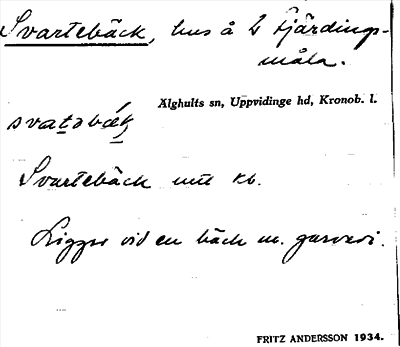 Svartebäck, hus å 2 Fjärdings-
måla.
Älghults sn, Uppvidinge hd, Kronob. l.
Svartebäck mtl kb.
Ligger vid en bäck m. garveri.
FRITZ ANDERSSON 1934.